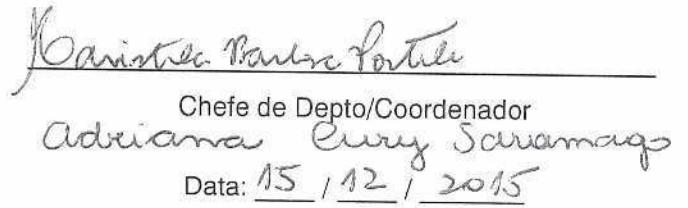 Maristela Barbosa Portela
Chefe de Depto/Coordenador
Adriana Cury Saramago
Data: 15 / 12 / 2015